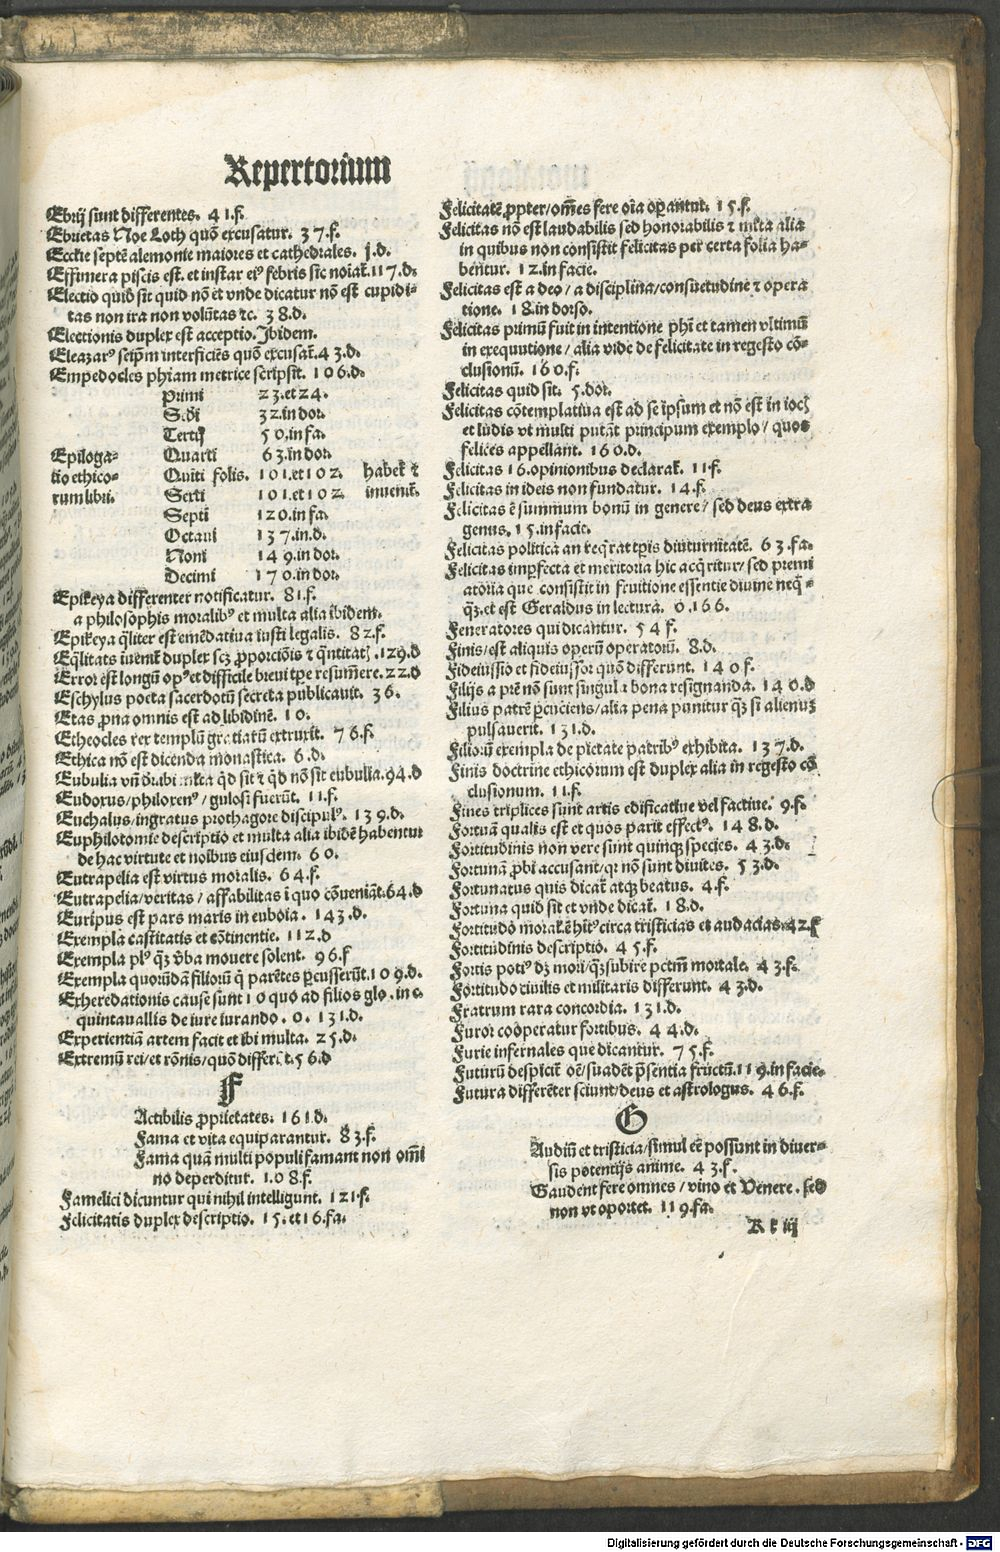 Repertorium
Ebrij sunt differentes. 41.f.
Ebrietas Noe Loth quō excusatur. 37.f.
Ecclie septē alemonie maiores et cathedrales. j.d.
Effimera piscis est. et instar eiꝰ febris sic noiat̄.117.d.
Electio quid sit quid nō et vnde dicatur nō est cupidi-
tas non ira non volūtas ⁊c. 38.d.
Electionis duplex est acceptio. Ibidem.
Eleazarꝰ seip̄m interficiēs quō excusat̄.43.d.
Empedocles phiam metrice scripsit. 106.d.
Primi 23.et 24.
Scđi 32.in dor.
Tertij 50.in fa.
Epiloga- Quarti 63.in dor.
tio ethico- Quīti folis. 101.et 102. habet̄ ⁊
rum libri. Sexti 101.et 102. inuenit̄.
Septi 120.in fa.
Octaui 137.in.d.
Noni 149.in dor.
Decimi 170.in dor.
Epikeya differenter notificatur. 81.f.
a philosophis moralibꝰ et multa alia ibidem.
Epikeya q̄liter est emēdatiua iusti legalis. 82.f.
Eq̄litats īuenit̄ duplex scꝫ ꝓporciōis ⁊ q̄ntitatꝭ.129.d
Error est longū opꝰ et difficile breui tꝑe resumere.22.d
Eschylus poeta sacerdotū secreta publicauit. 36.
Etas ꝓna omnis est ad libidinē. 10.
Etheocles rex templū gratiarū extruxit. 76.f.
Ethica nō est dicenda monastica. 6.d.
Eubulia vn̄ q̄d sit ⁊ q̄d nō sit eubulia.94.d
Eudoxus/philoxenꝰ/gulosi fuerūt. 11.f.
Euchalus/ingratus prothagore discipulꝰ. 139.d.
Euphilotomie descriptio et multa alia ibidē habentur
de hac virtute et noībus eiusdem. 60.
Eutrapelia est virtus moralis. 64.f.
Eutrapelia/veritas/affabilitas ī quo cōueniāt.64.d
Euripus est pars maris in euboia. 143.d.
Exempla castitatis et cōtinentie. 112.d
Exempla plꝰ q̄ꝫ v̄ba mouere solent. 96.f
Exempla quorūdā filiorū q̄ parētes ꝑcusserūt.109.d.
Exheredationis cause sunt 10 quo ad filios glo. in c.
quintauallis de iure iurando. 0. 131.d.
Experientiā artem facit et ibi multa. 25.d.
Extremū rei/et rōnis/quō differēt.56.d
F
Actibilis ꝓprietates. 161.d.
Fama et vita equiparantur. 83.f.
Fama quā multi populi famant non om̄i
no deperditur. 108.f.
Famelici dicuntur qui nihil intelligunt. 121.f.
Felicitatis duplex descriptio. 15.et 16.fa.
Felicitatē ꝓpter/om̄es fere oīa oꝑantur. 15.f.
Felicitas nō est laudabilis sed honorabilis ⁊ mĺta alia
in quibus non consistit felicitas per certa folia ha-
bentur. 12.in facie.
Felicitas est a deo/a disciplina/consuetudine ⁊ opera
tione. 18.in dorso.
Felicitas primū fuit in intentione phī et tamen vltimū
in exequutione/alia vide de felicitate in regesto cō-
clusionū. 160.f.
Felicitas quid sit. 5.dor.
Felicitas cōtemplatiua est ad se ip̄sum et nō est in iocꝭ
et ludis vt multi putāt principum exemplo/quos
felices appellant. 160.d.
Felicitas 16.opinionibus declarat̄. 11.f.
Felicitas in ideis non fundatur. 14.f.
Felicitas ē summum bonū in genere/sed deus extra
genus. 15.in facie.
Felicitas politica an req̄rat tꝑis diuturnitatē. 63.fa.
Felicitas imꝑfecta et meritoria hic acq̄ritur/sed premi
atoria que consistit in fruitione essentie diuine neq̄-
q̄ꝫ.et est Geraldus in lectura. 0.166.
Feneratores qui dicantur. 54 f.
Finis/est aliquis operū operatorū. 8.d.
Fideiussio et fideiussor quō differunt. 140 f.
Filijs a prē nō sunt singula bona resignanda. 140.d
Filius patrē ꝑcuciens/alia pena punitur q̄ꝫ si alienuꝫ
pulsauerit. 131.d.
Filiorū exempla de pietate patribꝰ exhibita. 137.d.
Finis doctrine ethicorum est duplex alia in regesto cō
clusionum. 11.f.
Fines triplices sunt artis edificatiue vel factiue. 9.f.
Fortunā qualis est et quos parit effectꝰ. 148.d.
Fortitudinis non vere sunt quinqꝫ species. 43.d.
Fortunā ꝓbi accusant/qr nō sunt diuites. 53.d.
Fortunatus quis dicat̄ atqꝫ beatus. 4.f.
Fortuna quid sit et vnde dicat̄. 18.d.
Fortitudo circa tristicias et audacias.42.f
Fortitudinis descriptio. 45.f.
Fortis potiꝰ dꝫ mori/q̄ꝫ subire pctm̄ mortale. 43.f.
Fortitudo ciuilis et militaris differunt. 43.d.
Fratrum rara concordia. 131.d.
Furor cooperatur fortibus. 44.d.
Furie infernales que dicantur. 75.f.
Futurū despicit̄ oē/suadēt p̄sentia fructū.119.in facie.
Futura differēter sciunt/deus et astrologus. 46.f.
G
Audiū et tristicia/simul eē possunt in diuer-
sis potentijs anime. 43.f.
Gaudent fere omnes/vino et Venere. sed
non vt oportet. 119.fa.
R r iij
Digitalisierung gefördert durch die Deutsche Forschungsgemeinschaft - DFG